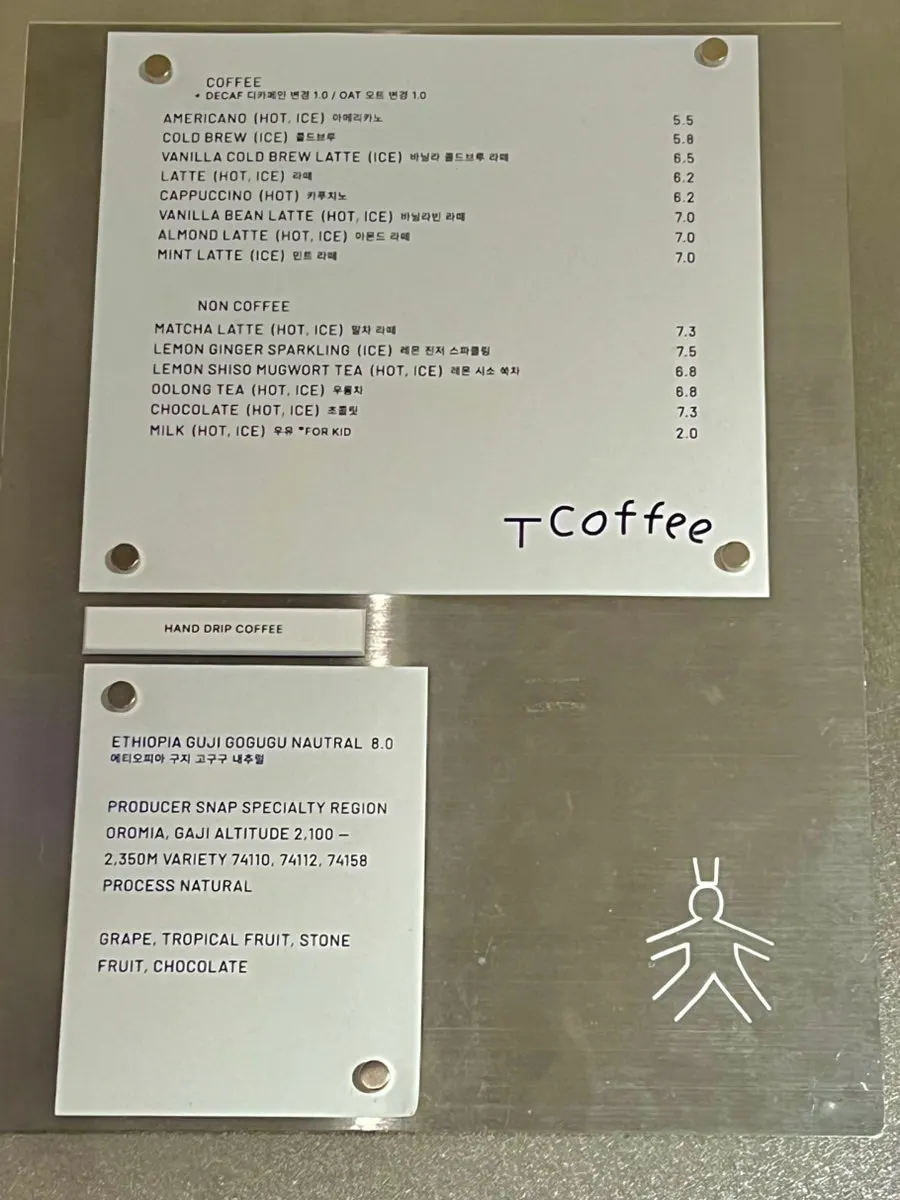 COFFEE
* DECAF 디카페인 변경 1.0 / OAT 오트 변경 1.0
AMERICANO (HOT, ICE) 아메리카노 5.5
COLD BREW (ICE) 콜드브루 5.8
VANILLA COLD BREW LATTE (ICE) 바닐라 콜드브루 라떼 6.5
LATTE (HOT, ICE) 라떼 6.2
CAPPUCCINO (HOT) 카푸치노 6.2
VANILLA BEAN LATTE (HOT, ICE) 바닐라빈 라떼 7.0
ALMOND LATTE (HOT, ICE) 아몬드 라떼 7.0
MINT LATTE (ICE) 민트 라떼 7.0
NON COFFEE
MATCHA LATTE (HOT, ICE) 말차 라떼 7.3
LEMON GINGER SPARKLING (ICE) 레몬 진저 스파클링 7.5
LEMON SHISO MUGWORT TEA (HOT, ICE) 레몬 시소 쑥차 6.8
OOLONG TEA (HOT, ICE) 우롱차 6.8
CHOCOLATE (HOT, ICE) 초콜릿 7.3
MILK (HOT, ICE) 우유 *FOR KID 2.0
T Coffee
HAND DRIP COFFEE
ETHIOPIA GUJI GOGUGU NAUTRAL 8.0
에티오피아 구지 고구구 내추럴
PRODUCER SNAP SPECIALTY REGION
OROMIA, GAJI ALTITUDE 2,100 –
2,350M VARIETY 74110, 74112, 74158
PROCESS NATURAL
GRAPE, TROPICAL FRUIT, STONE
FRUIT, CHOCOLATE